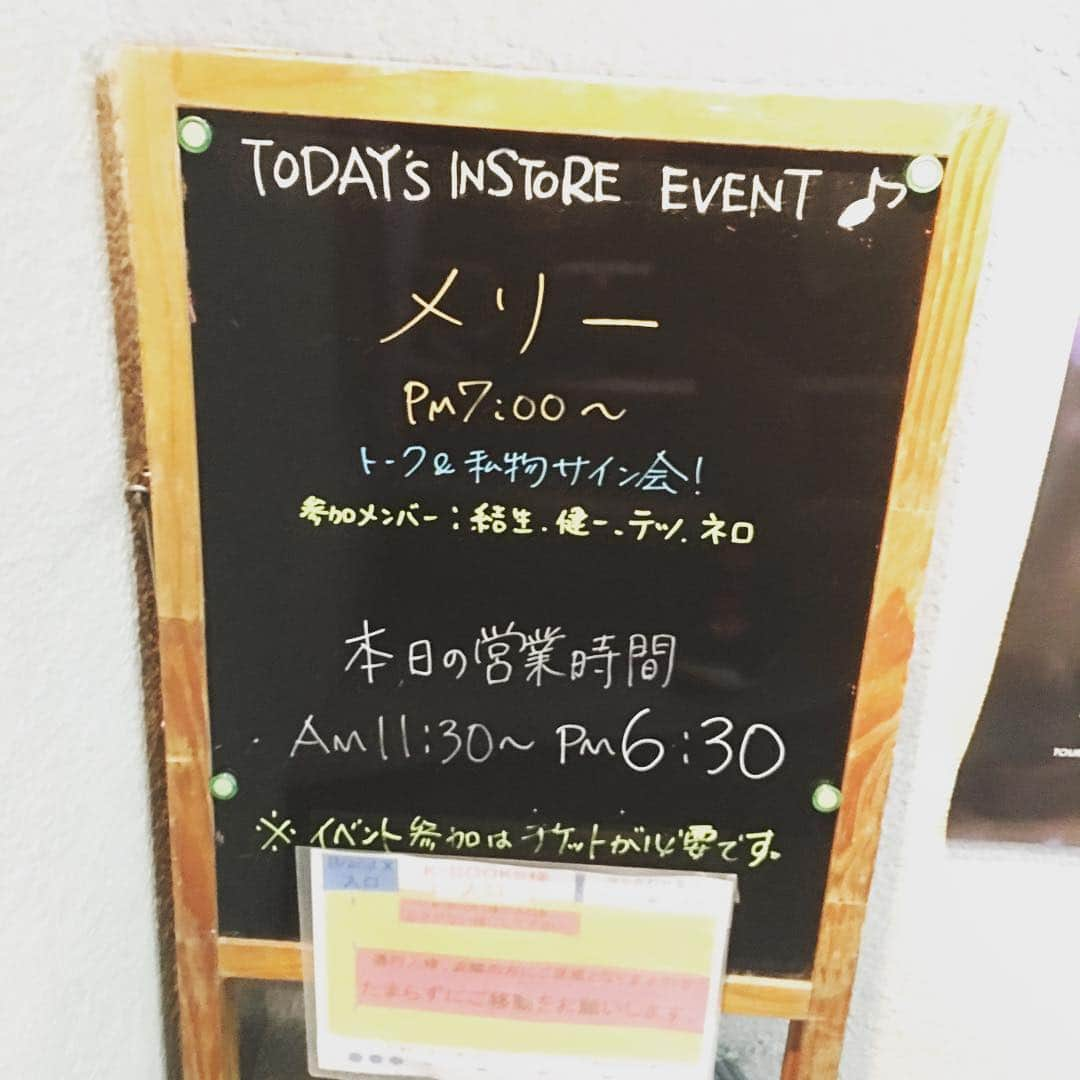 TODAY'S INSTORE EVENT ♪
メリー
PM7:00〜
トーク&私物サイン会!
参加メンバー:結生.健一.テツ.ネロ
本日の営業時間
AM11:30〜PM6:30
※イベント参加はチケットが必要です。
入口
たまらずにご移動をお願いします
TOUR